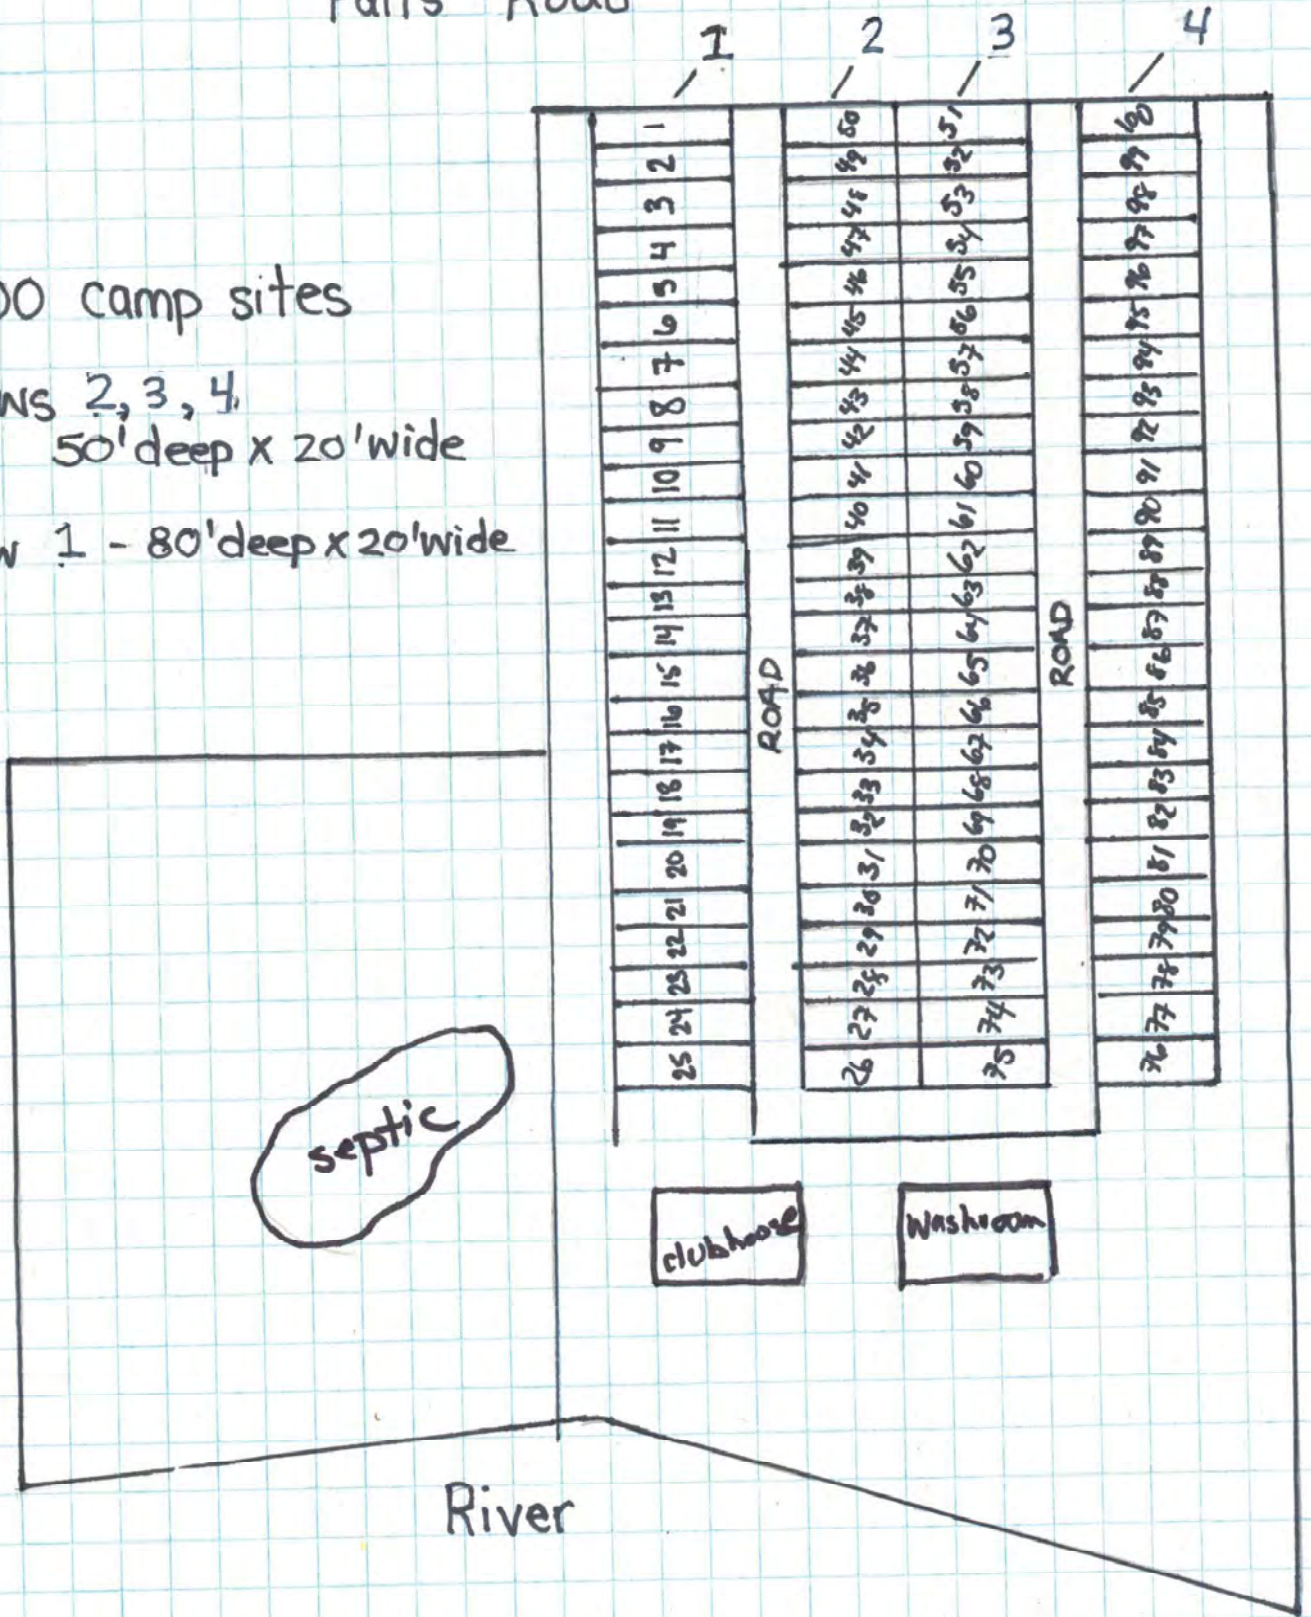 Falls Road
1 2 3 4
00 camp sites
ws 2, 3, 4.
50' deep x 20' wide
w 1 - 80' deep x 20' wide
1
2
3
4
5
6
7
8
9
10
11
12
13
14
15
16
17
18
19
20
21
22
23
24
25
ROAD
50
49
48
47
46
45
44
43
42
41
40
39
38
37
36
35
34
33
32
31
30
29
28
27
26
51
52
53
54
55
56
57
58
59
60
61
62
63
64
65
66
67
68
69
70
71
72
73
74
75
ROAD
100
99
98
97
96
95
94
93
92
91
90
89
88
87
86
85
84
83
82
81
80
79
78
77
76
septic
clubhouse
Washroom
River